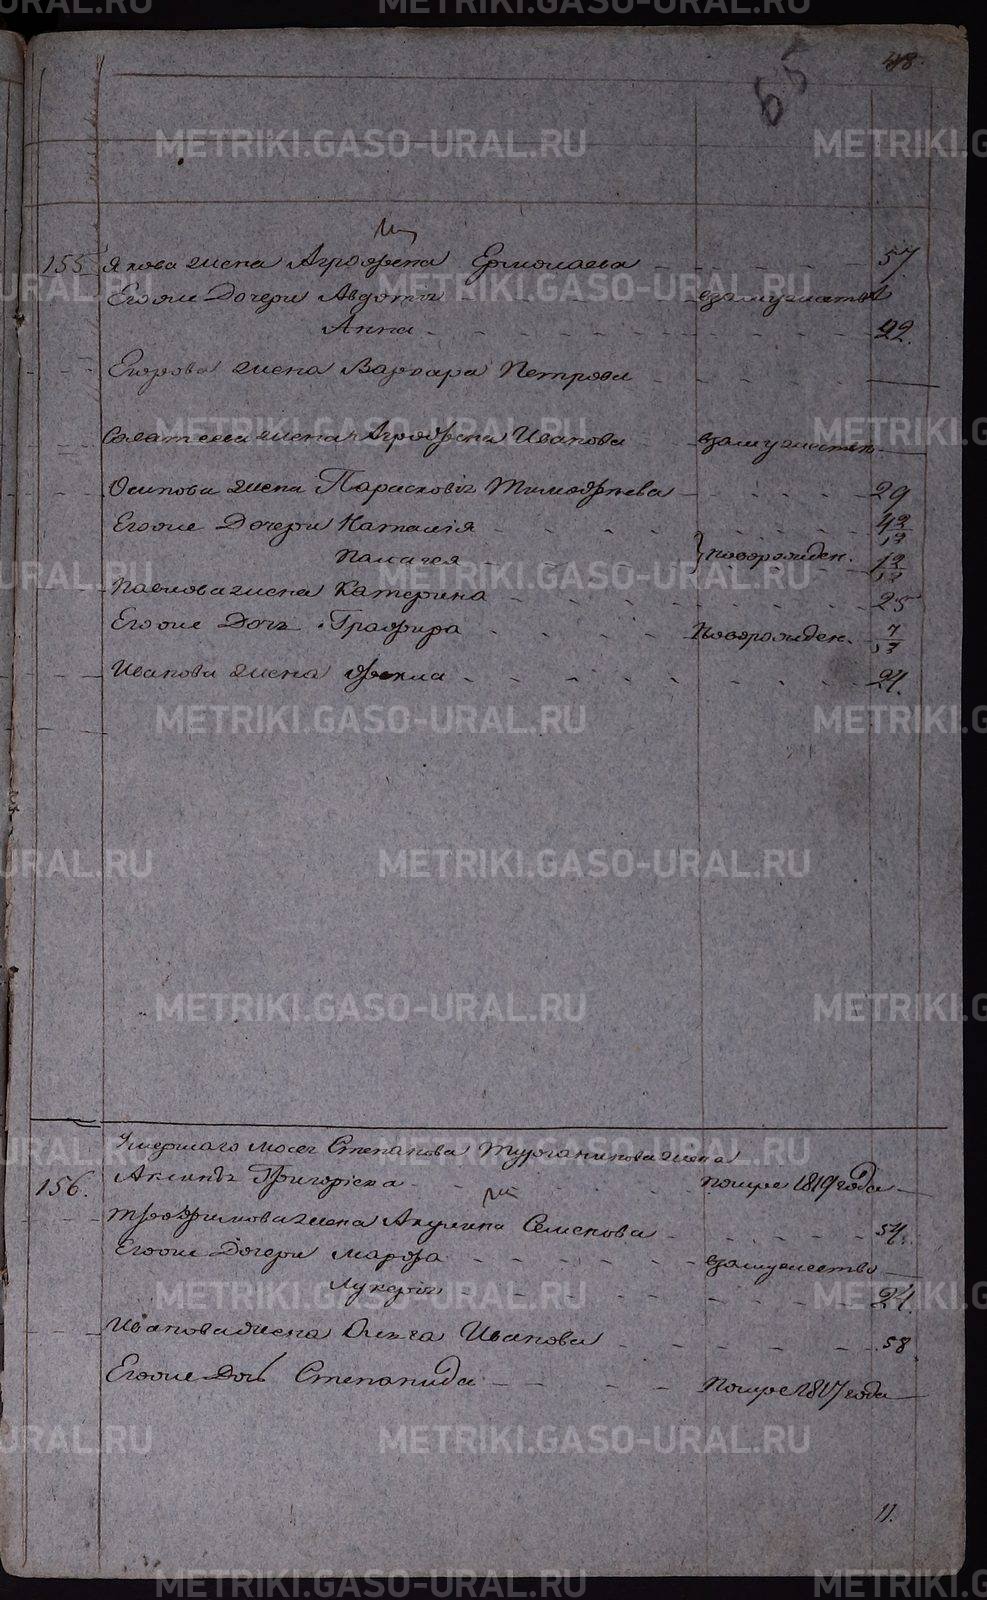 65
48.
155 Якова жена Агрофена Ермолаева 57
Егоже Дочери Авдотья взамужестве
Анна 22.
Егорова жена Варвара Петрова
жена Агрофена Иванова взамужестве
Осипова жена Парасковья Тимофеева 29
Егоже Дочери Наталия
Палагея новорожден.
Павлова жена Катерина 25
Егоже Дочь Графира Новорожден.
Иванова жена Фекла 21.
Умершаго Мосея Степанова Турганикова жена
156. Григорьева помре 1819 года
Трофимова жена Акулина Семенова 54.
Егоже Дочери Марфа взамужество
Лукерья 21.
Иванова жена Ольга Иванова 58
Егоже Дочь Степанида Помре 1817 года
11.
METRIKI.GASO-URAL.RU